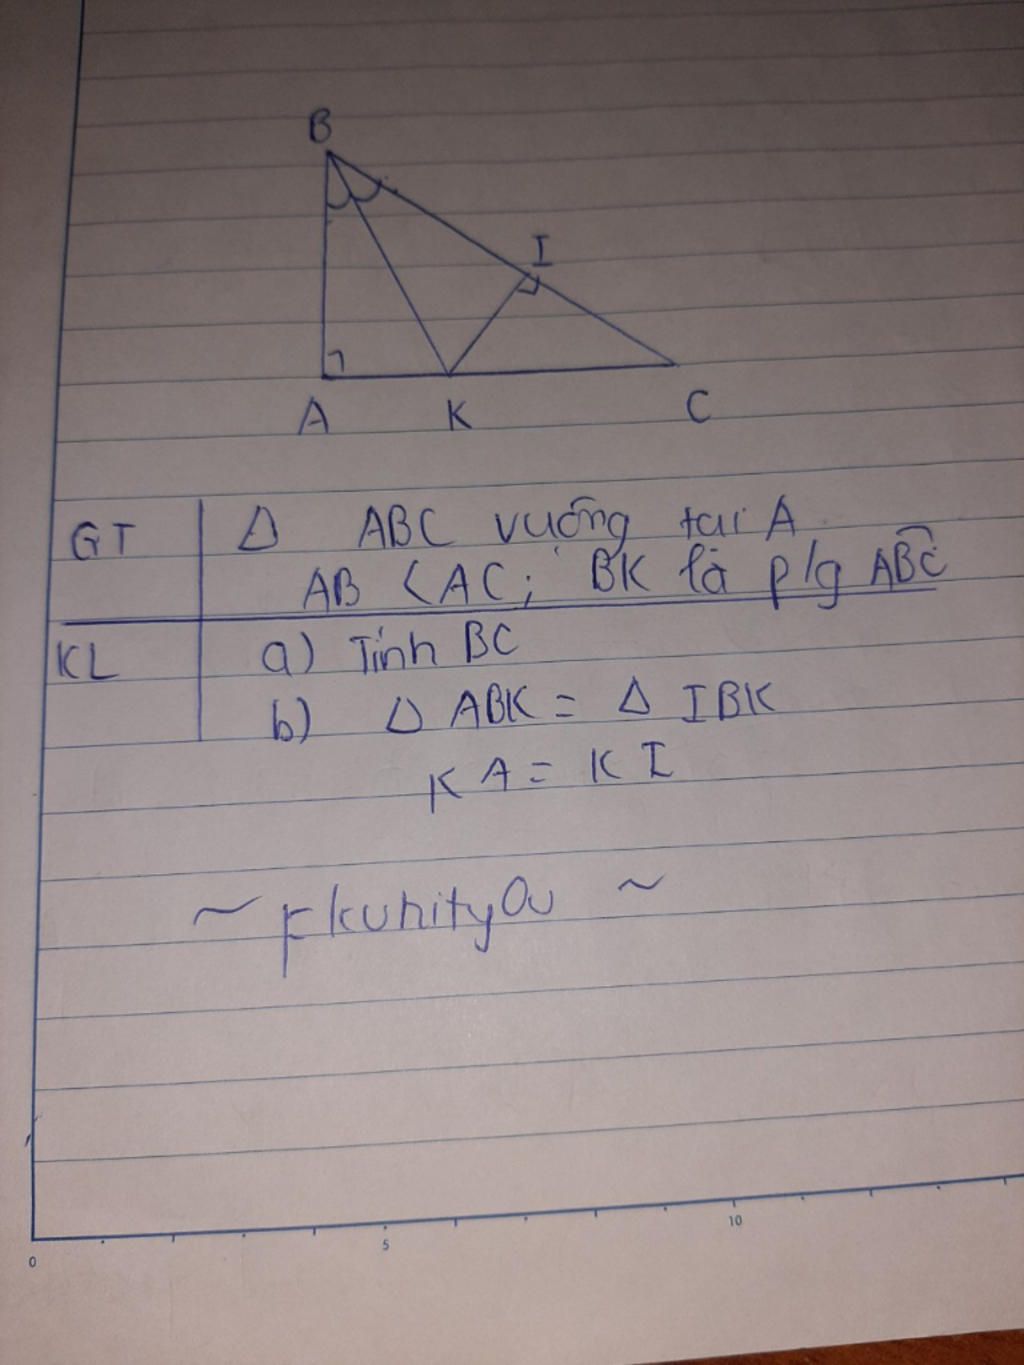 B
I
A K C
GT Δ ABC vuông tại A
AB < AC; BK là p/g ABC
KL a) Tính BC
b) Δ ABK = Δ IBK
KA = KI
0 5 10